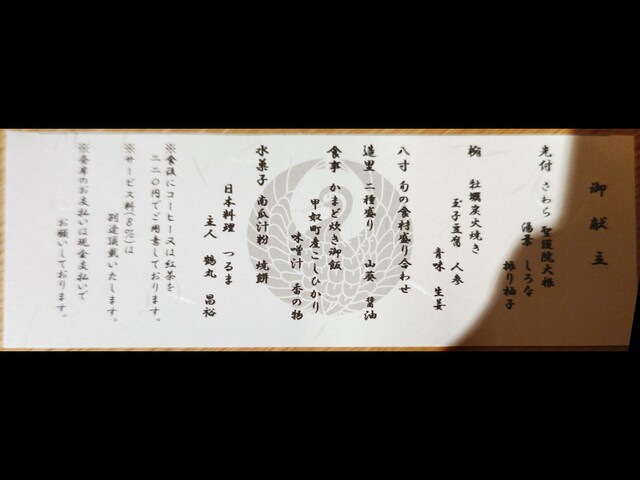 御献主
先付 さわら 聖護院大根
湯葉 しろな
振り柚子
椀 牡蠣炭火焼き
玉子豆腐 人参
青味 生姜
八寸 旬の食材盛り合わせ
造里 二種盛り 山葵 醤油
食事 かまど炊き御飯
甲奴町産こしひかり
味噌汁 香の物
水菓子 南瓜汁粉 焼餅
日本料理 つるま
主人 鶴丸 昌裕
※食後にコーヒー又は紅茶を
二二〇円でご用意しております。
※サービス料(8%)は
別途頂戴いたします。
※会席のお支払いは現金支払いで
お願いしております。